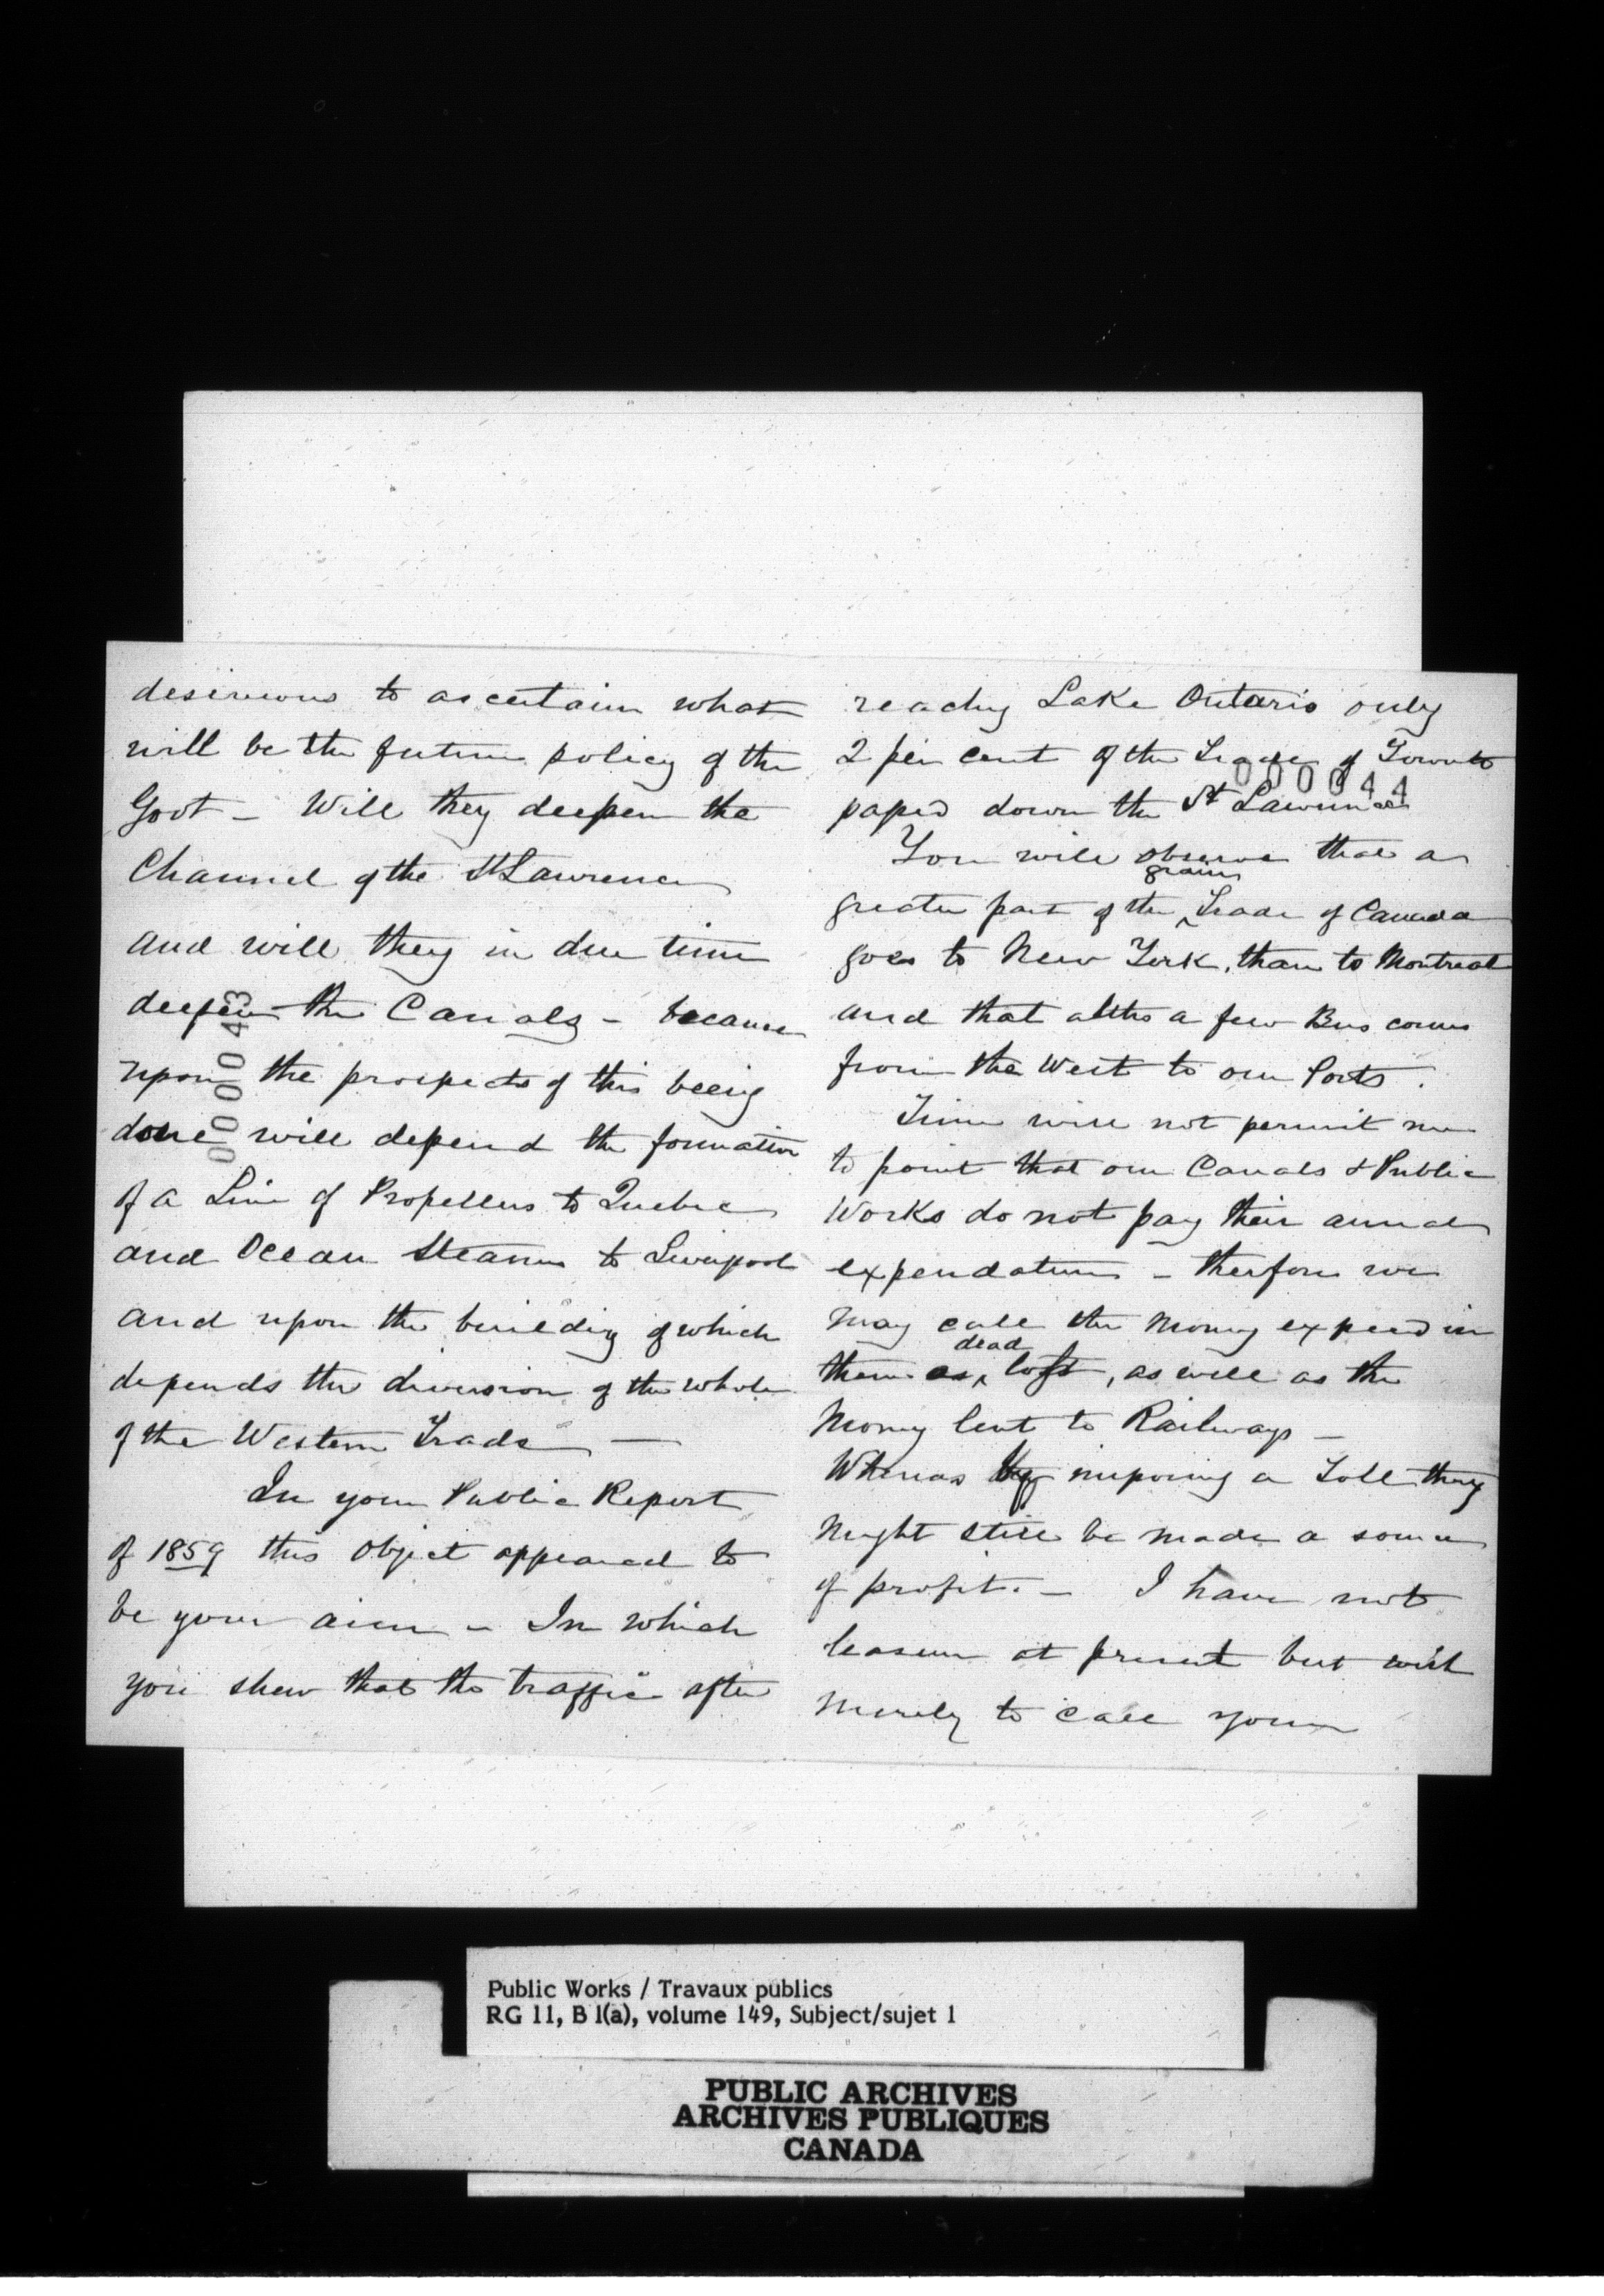 desirous to ascertain what
will be the future policy of the
Govt - Will they deepen the
Channel of the St Lawrence
and will they in due time
deepen the Canals - because
upon the prospects of this being
done will depend the formation
of a Line of Propellers to Quebec
and Ocean Steams to Liverpool
and upon the building of which
depends the diversion of the whole
of the Western Trade —
In your Public Report
of 1859 this object appeared to
be your aim - In which
you shew that the traffic after
000043
reaching Lake Ontario only
2 per cent of the Trade of Toronto
000044
passed down the St Lawrence
You will observe that a
grain
greater part of the Trade of Canada
goes to New York, than to Montreal
and that altho a few Bus comes
from the West to our Ports.
Time will not permit me
to point that our Canals & Public
Works do not pay their annual
expendature - therfore we
may call the money expend in
dead
them as lost, as well as the
money lent to Railways -
Whereas by imposing a Toll they
might still be made a source
of profit. - I have not
leasure at present but wish
merely to call your
Public Works / Travaux publics
RG 11, B 1(a), volume 149, Subject/sujet 1
PUBLIC ARCHIVES
ARCHIVES PUBLIQUES
CANADA